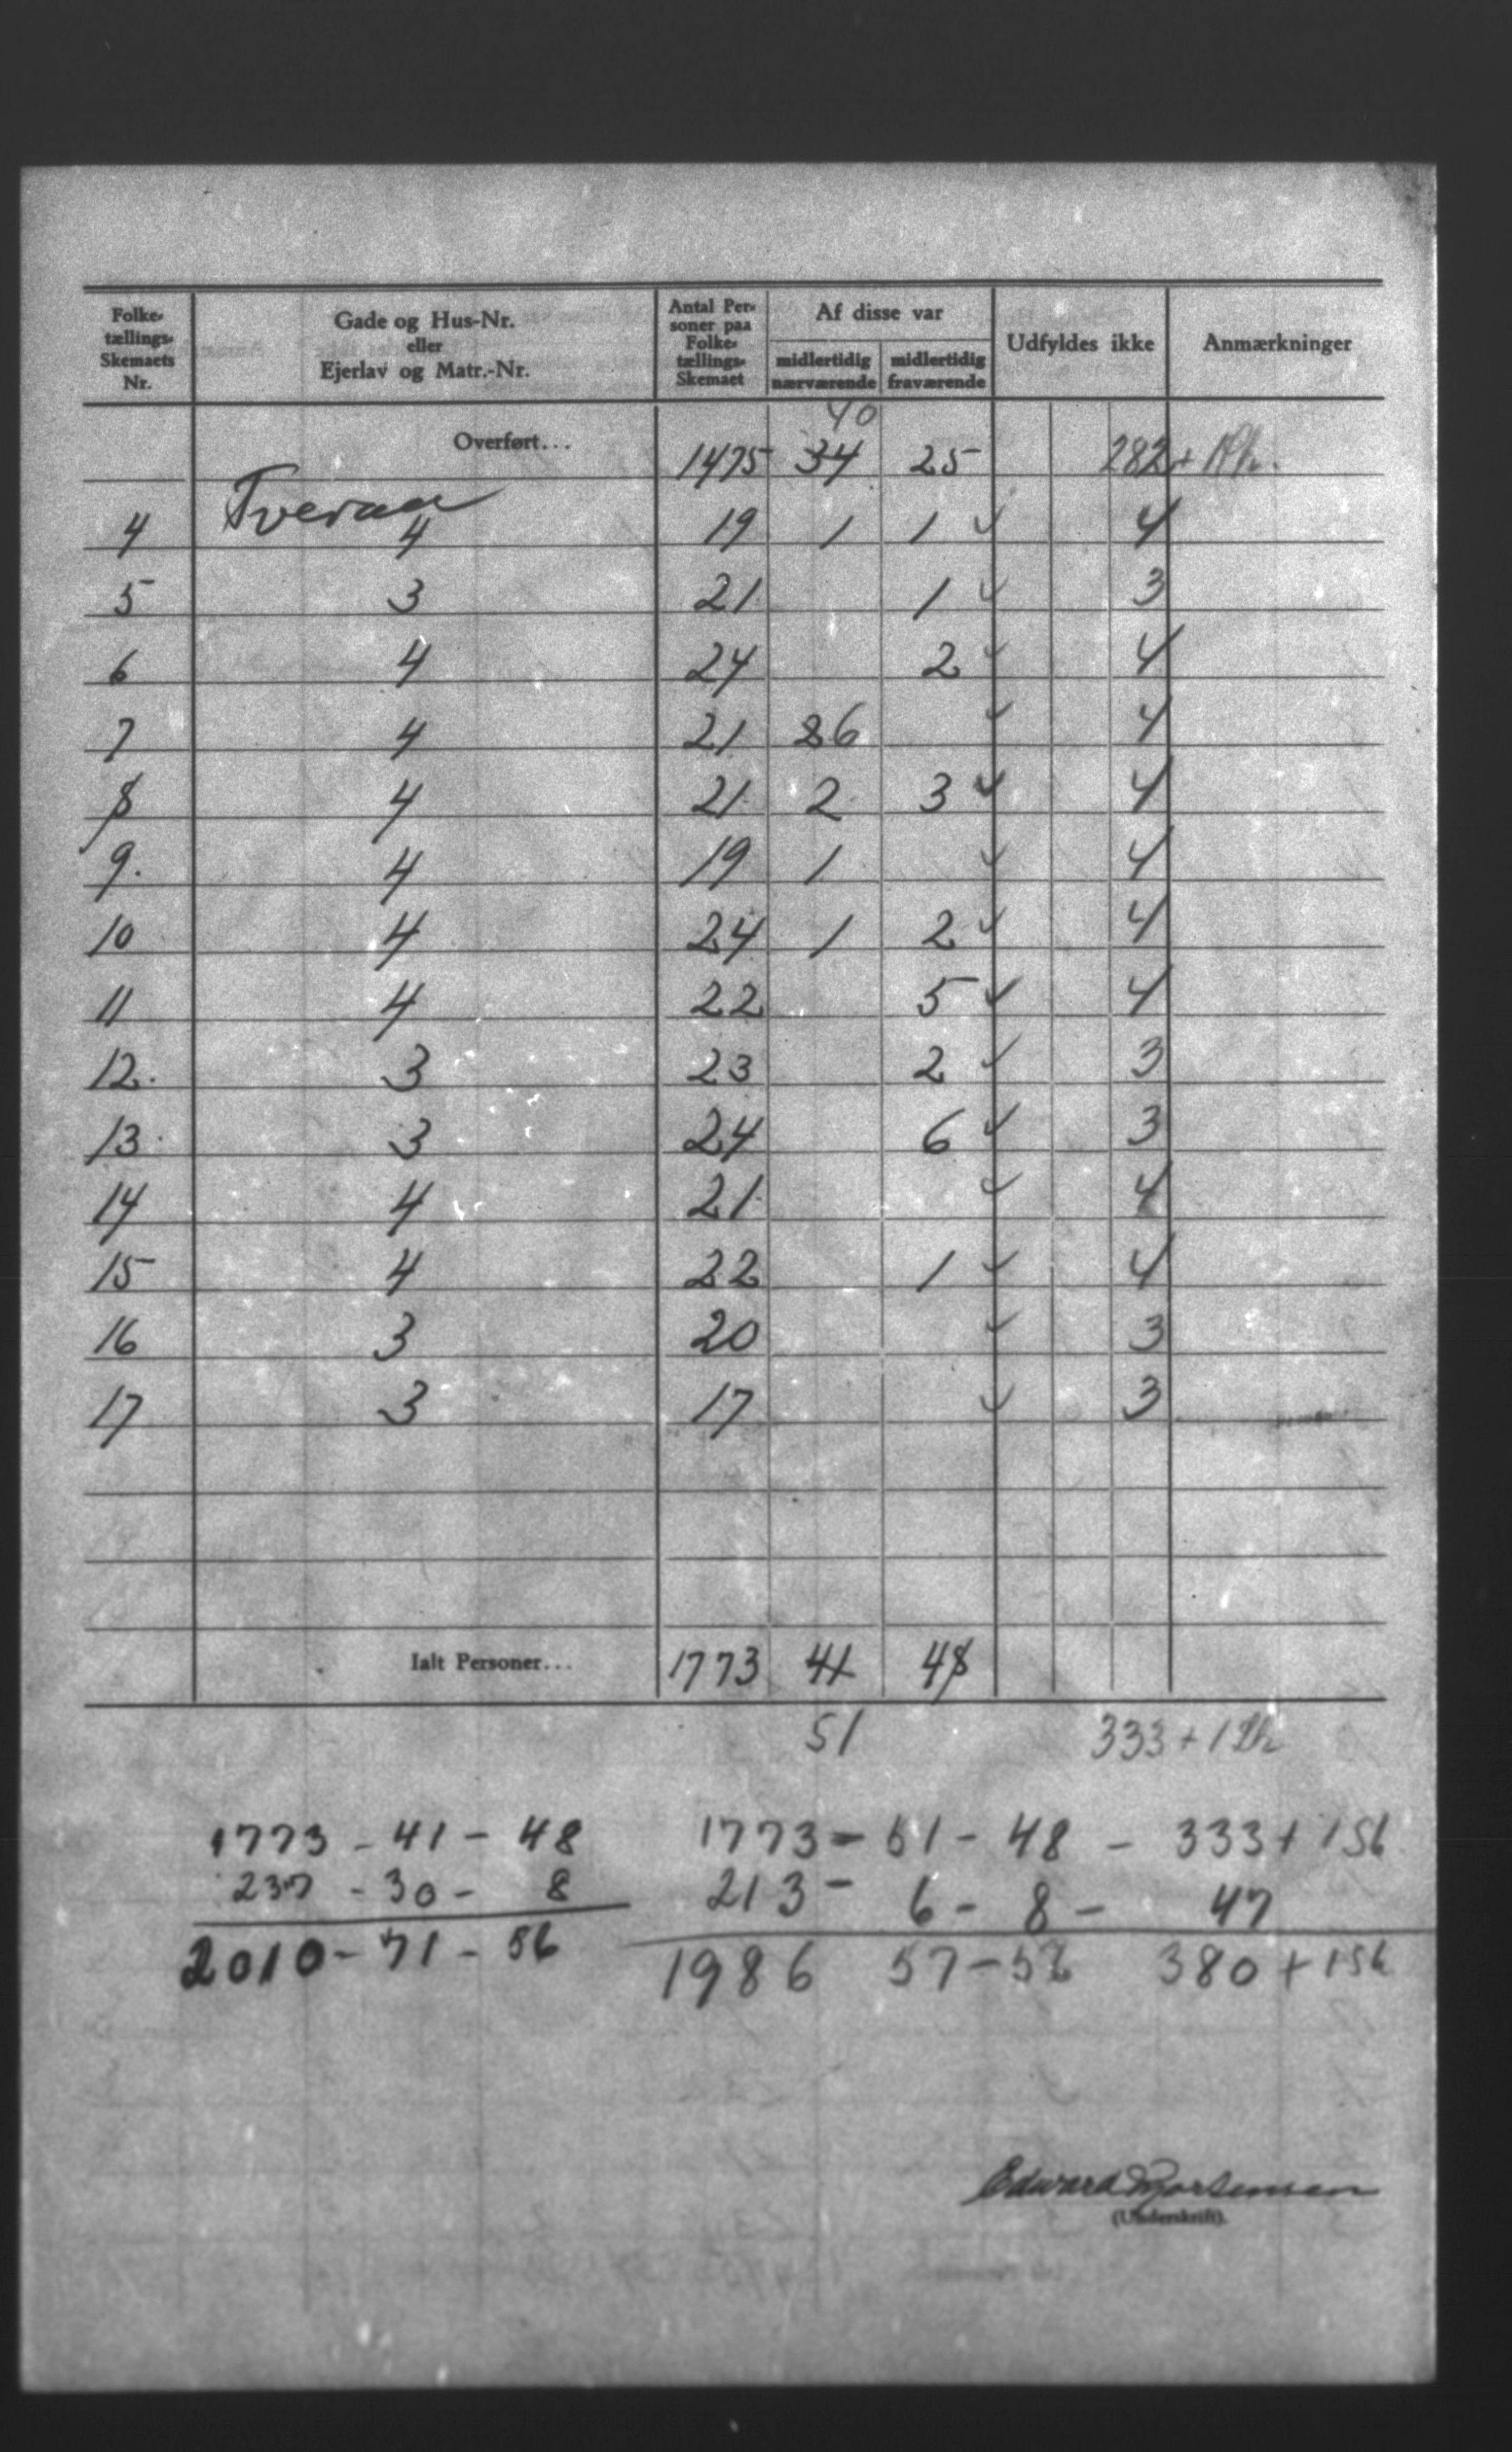 Folke-tællings-Skemaets Nr. | Gade og Hus-Nr. eller Ejerlav og Matr.-Nr. | Antal Personer paa Folke-tællings-Skemaet | Af disse var midlertidig nærværende | midlertidig fraværende | Udfyldes ikke | Anmærkninger
40
Overført... 1475 34 25 282 +
Tveraa
4 4 19 1 1 ✓ 4
5 3 21 1 ✓ 3
6 4 24 2 ✓ 4
7 4 21 6 ✓ 4
8 4 21 2 3 ✓ 4
9. 4 19 1 ✓ 4
10 4 24 1 2 ✓ 4
11 4 22 5 ✓ 4
12. 3 23 2 ✓ 3
13. 3 24 6 ✓ 3
14 4 21 ✓ 4
15 4 22 1 ✓ 4
16 3 20 ✓ 3
17 3 17 ✓ 3
Ialt Personer... 1773 41 48
51 333 + 1
1773 - 41 - 48 1773 - 51 - 48 - 333 + 1
237 - 30 - 8 213 - 6 - 8 - 47
2010 - 71 - 56 1986 57 - 56 380 + 1
Edward Mortensen
(Underskrift).